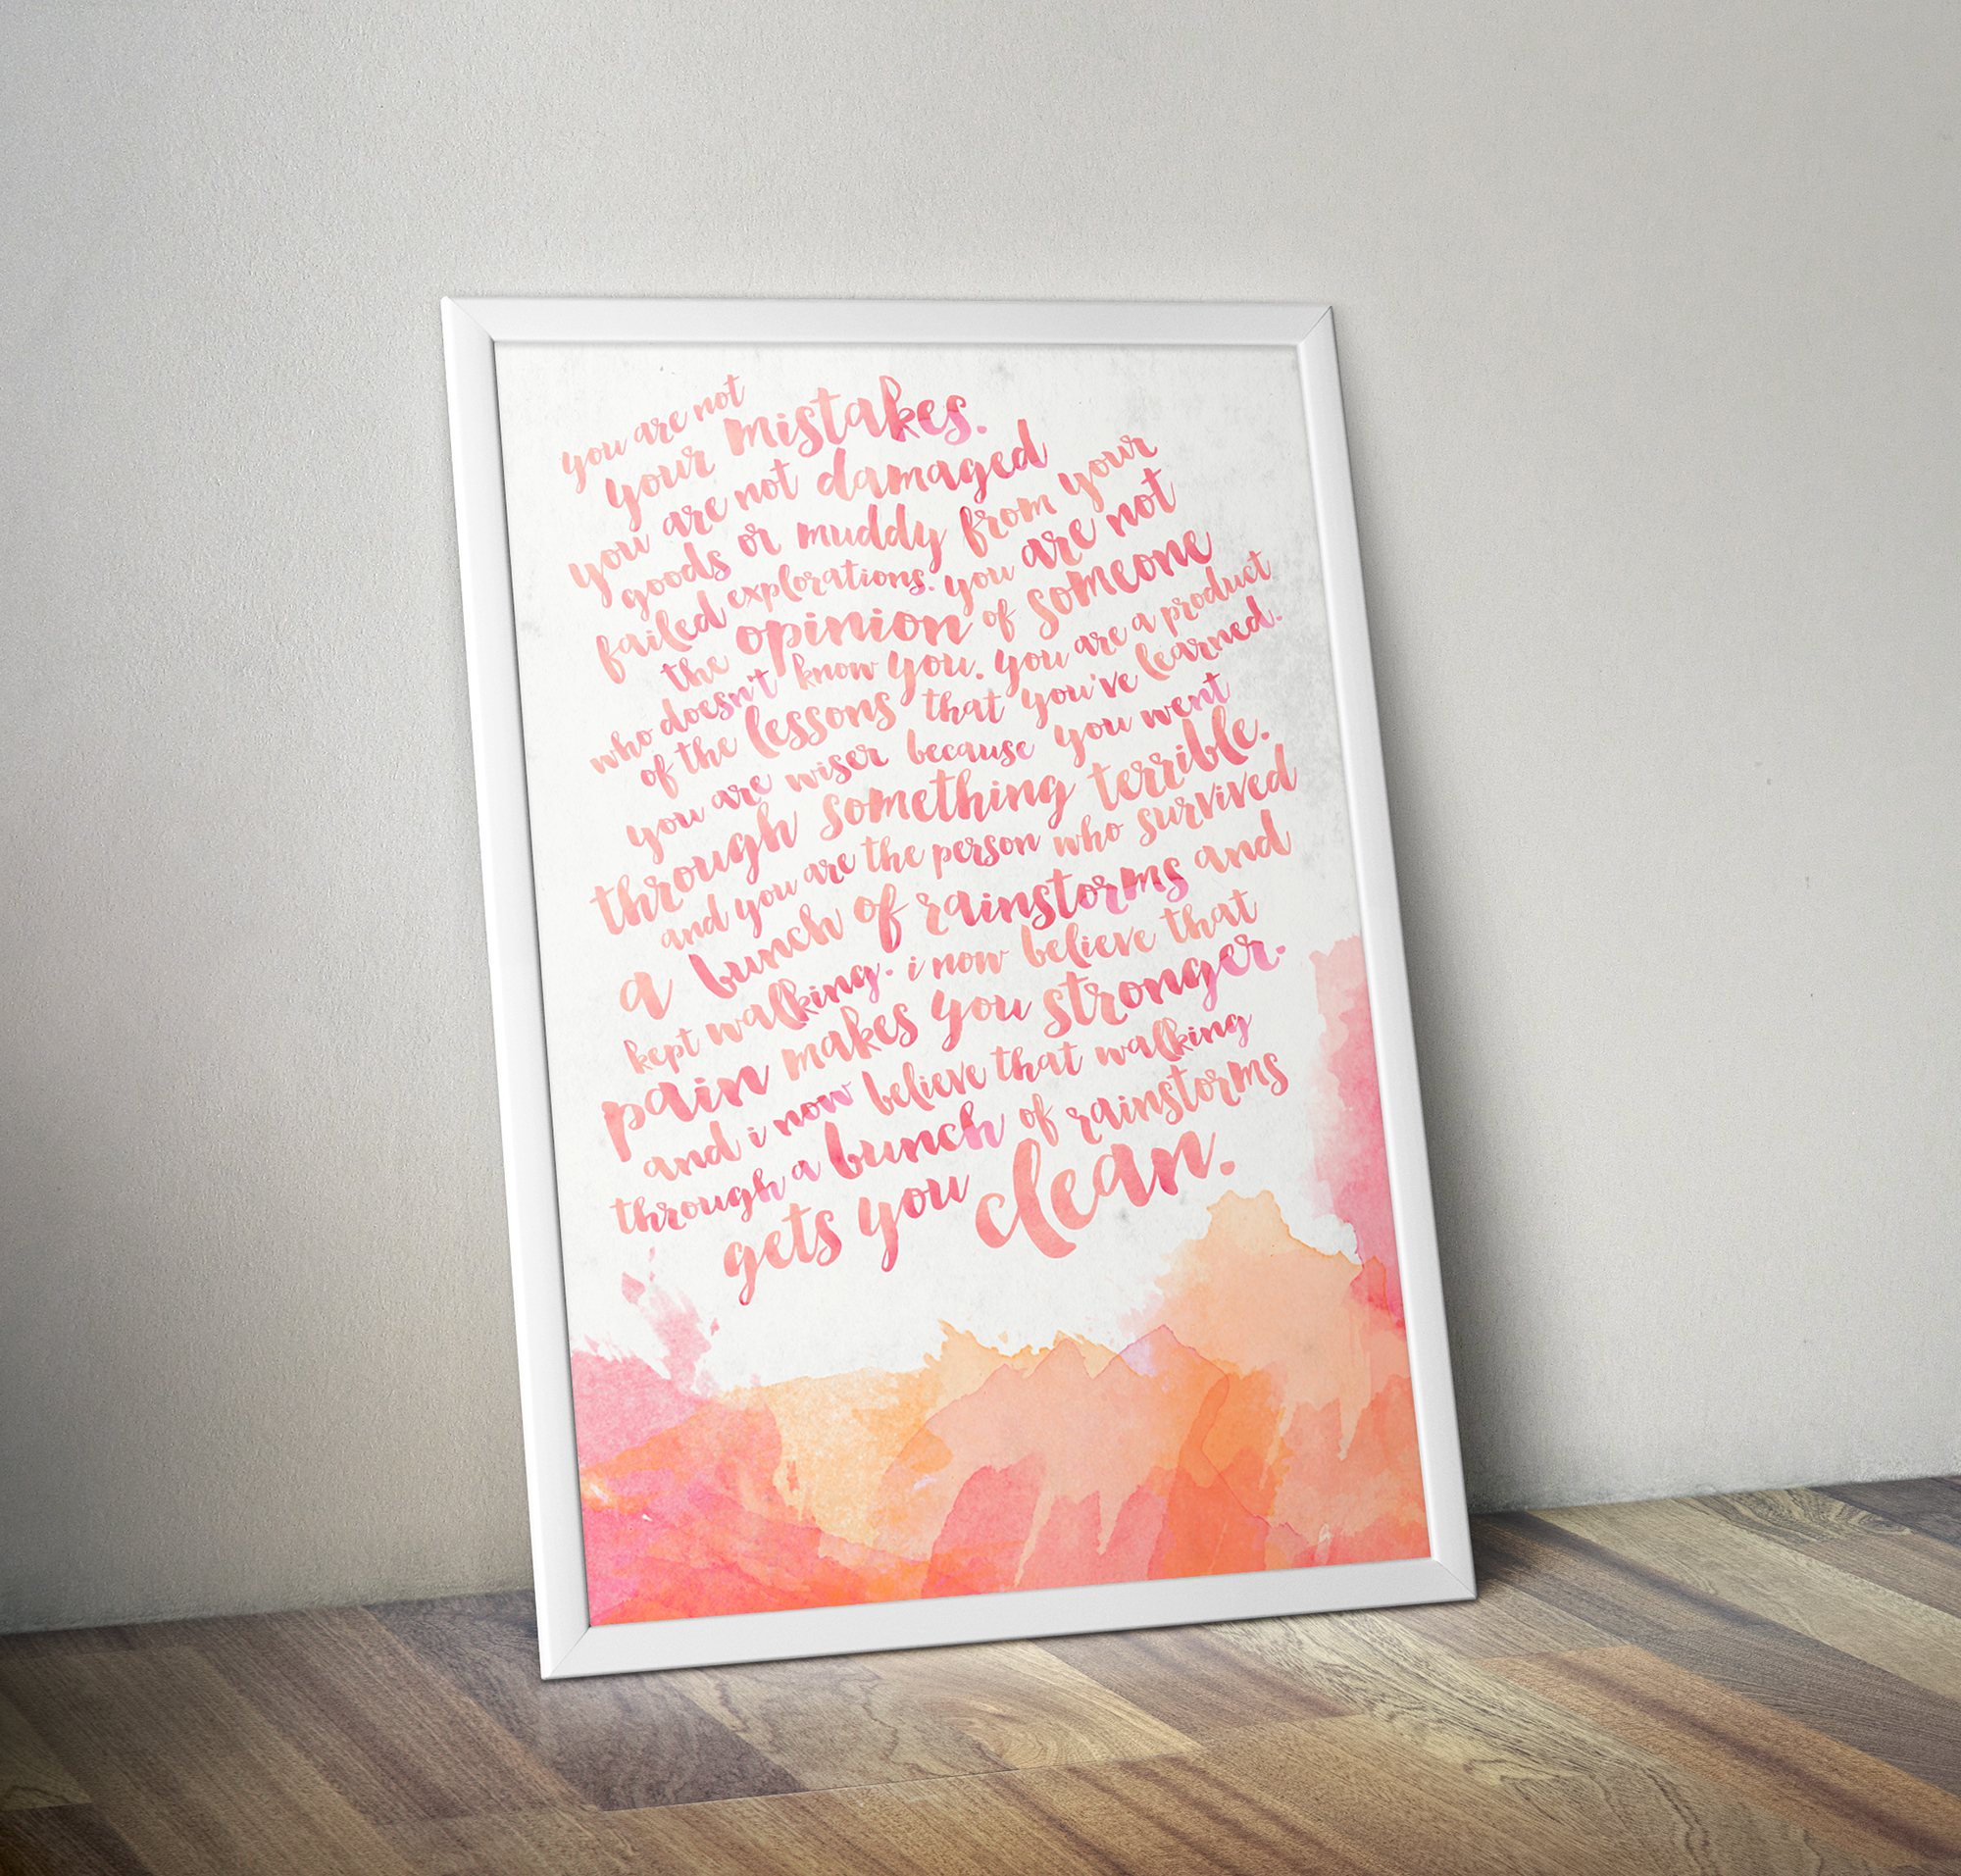 you are not
your mistakes.
you are not damaged
goods or muddy from your
failed explorations. you are not
the opinion of someone
who doesn't know you. you are a product
of the lessons that you've learned.
you are wiser because you went
through something terrible.
and you are the person who survived
a bunch of rainstorms and
kept walking. i now believe that
pain makes you stronger.
and i now believe that walking
through a bunch of rainstorms
gets you clean.